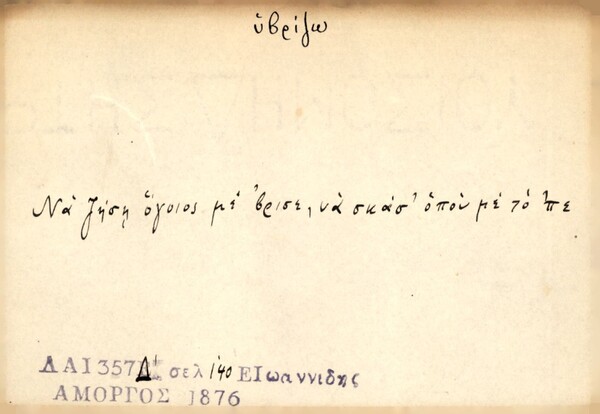 ὑβρίζω
Νὰ ζήσῃ ὅγοιος μὲ ὕβρισε, νὰ σκάσ' ὁποὺ μὲ τό 'πε
ΛΑΙ357Δ' σελ 140 ΕΙωαννιδης
ΑΜΟΡΓΟΣ 1876